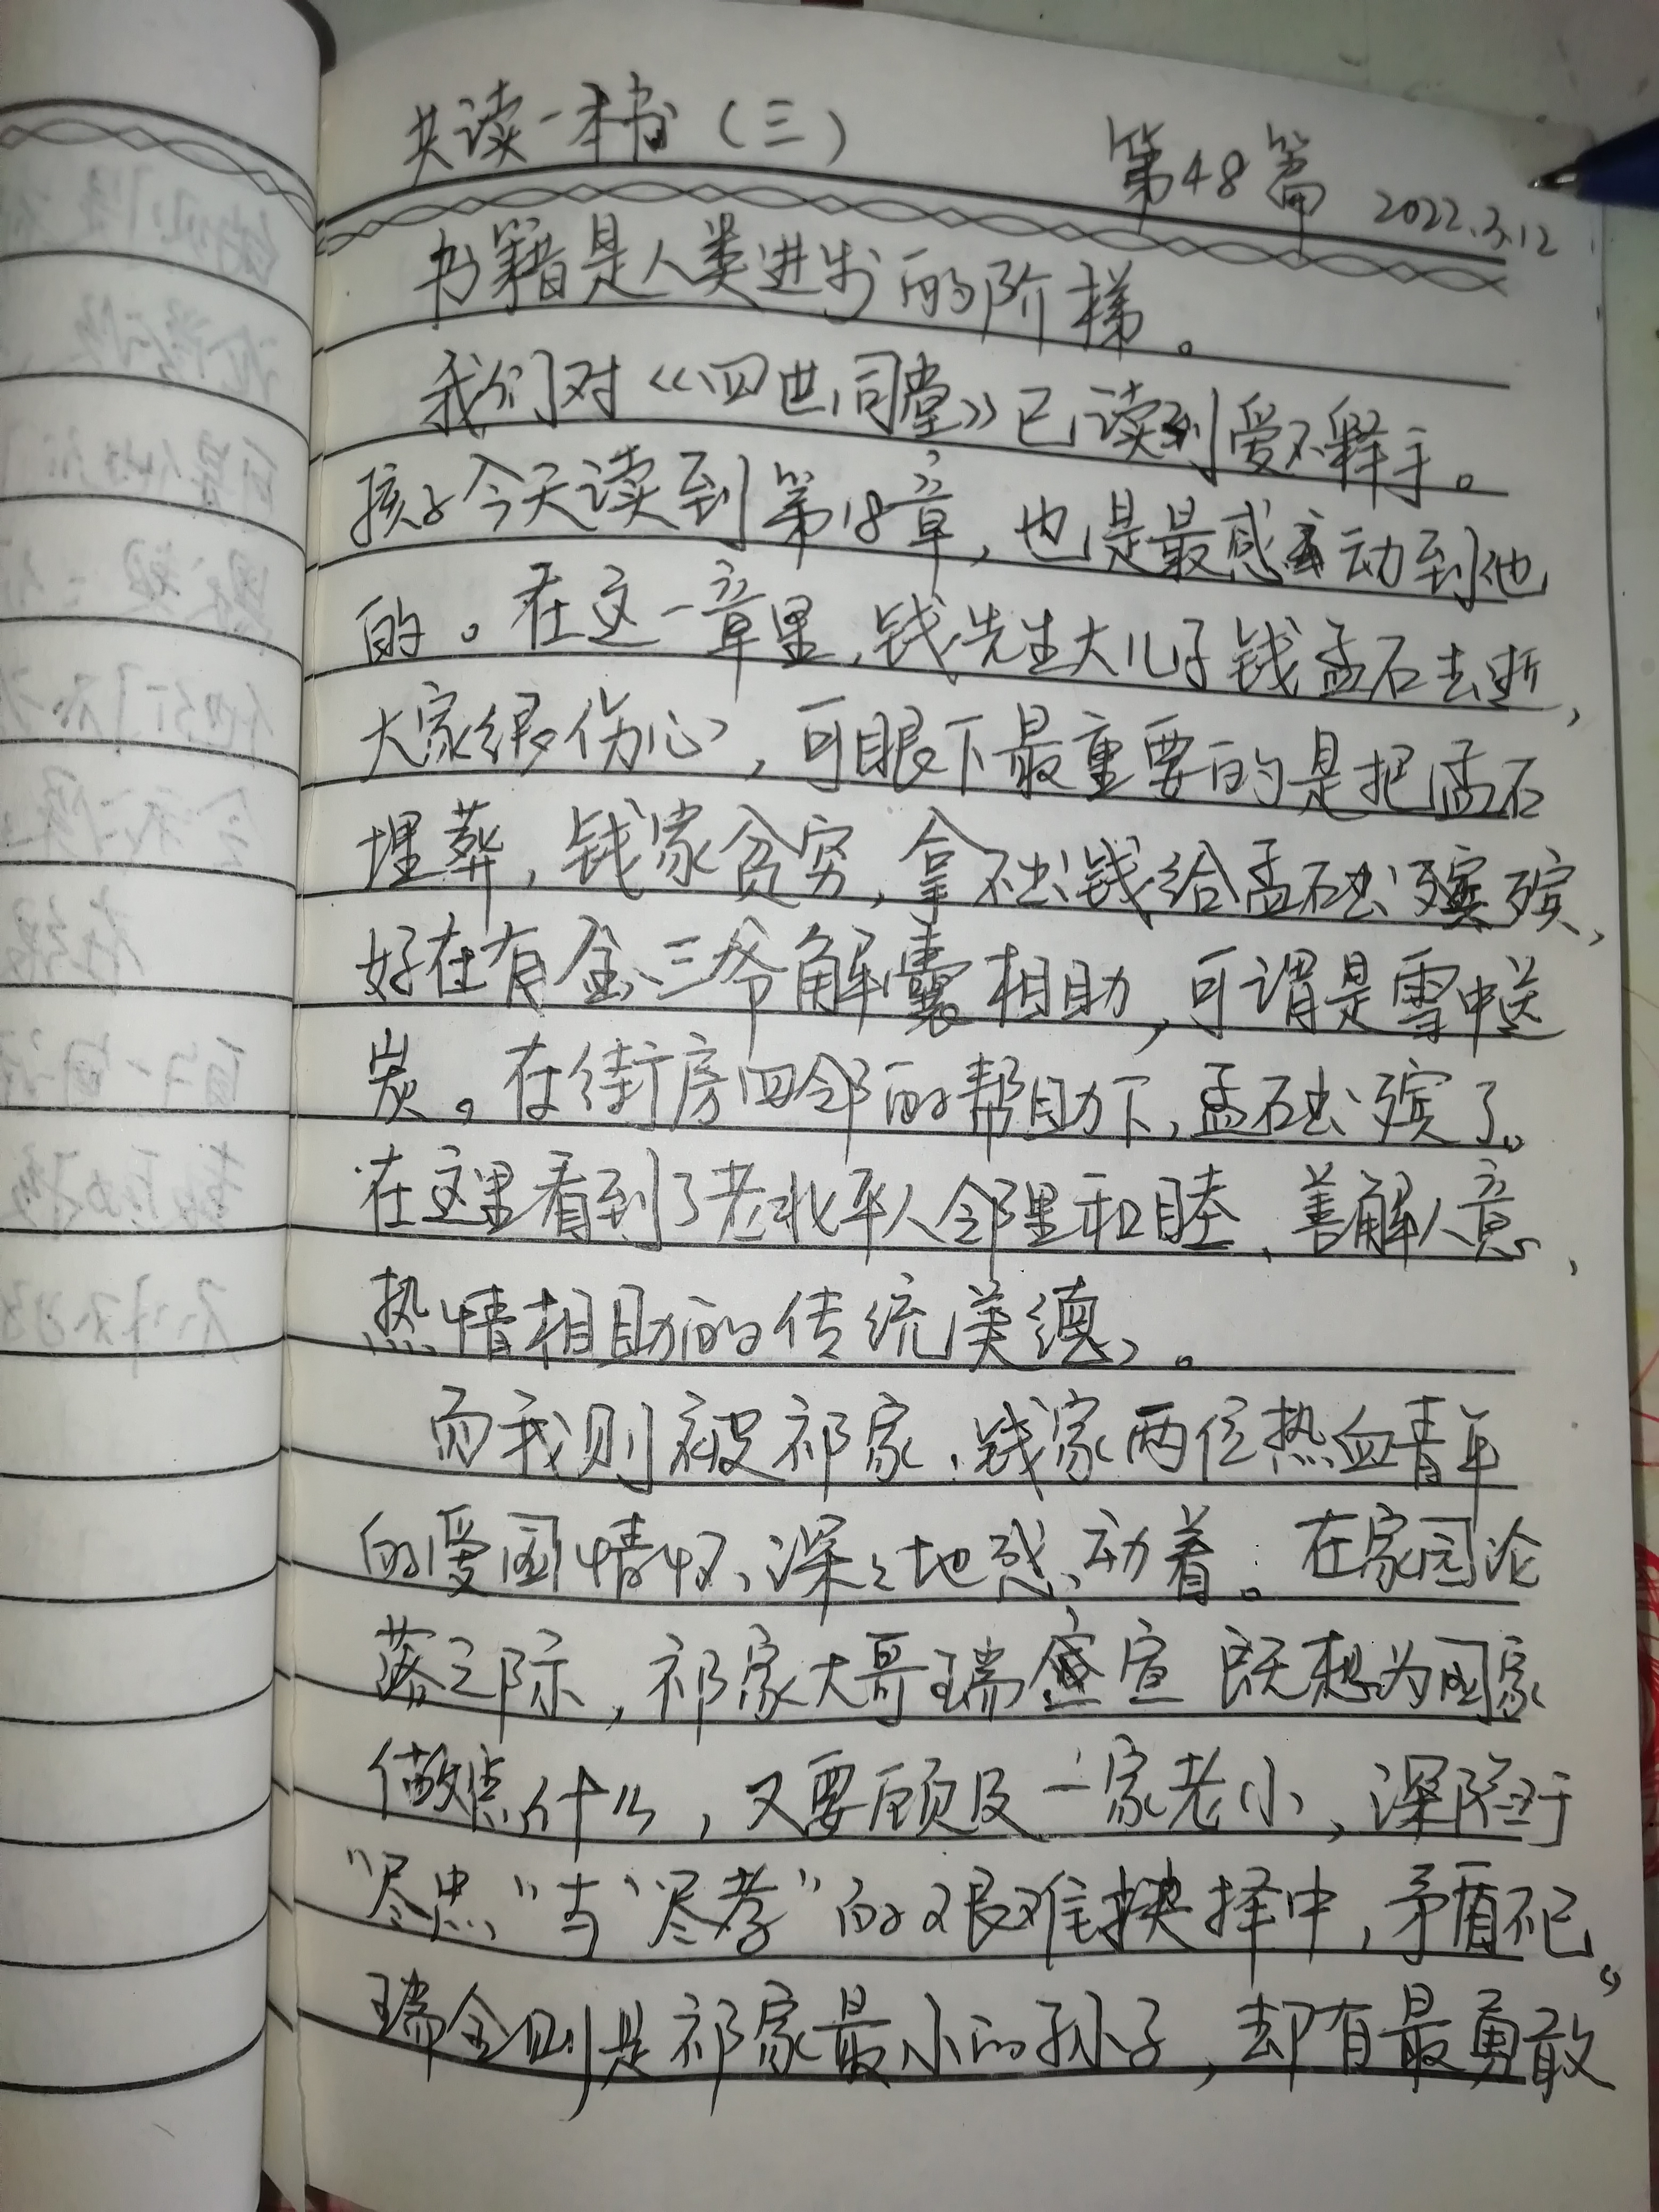 共读一本书（三）
第48篇 2022.3.12
书籍是人类进步的阶梯。
我们对《四世同堂》已读到爱不释手。
孩子今天读到第18章，也是最感动到他
的。在这一章里，钱先生大儿子钱孟石去逝，
大家很伤心，可眼下最重要的是把孟石
埋葬，钱家贫穷，拿不出钱给孟石出殡，
好在有金三爷解囊相助，可谓是雪中送
炭。在街房四邻的帮助下，孟石出殡了。
在这里看到了老北平人邻里和睦、善解人意、
热情相助的传统美德。
而我则被祁家、钱家两位热血青年
的爱国情怀、深深地感动着。在家园沦
落之际，祁家大哥瑞宣既想为国家
做点什么，又要顾及一家老小，深陷于
“尽忠”与“尽孝”的艰难抉择中，矛盾不已。
瑞全则是祁家最小的孙子，却有最勇敢